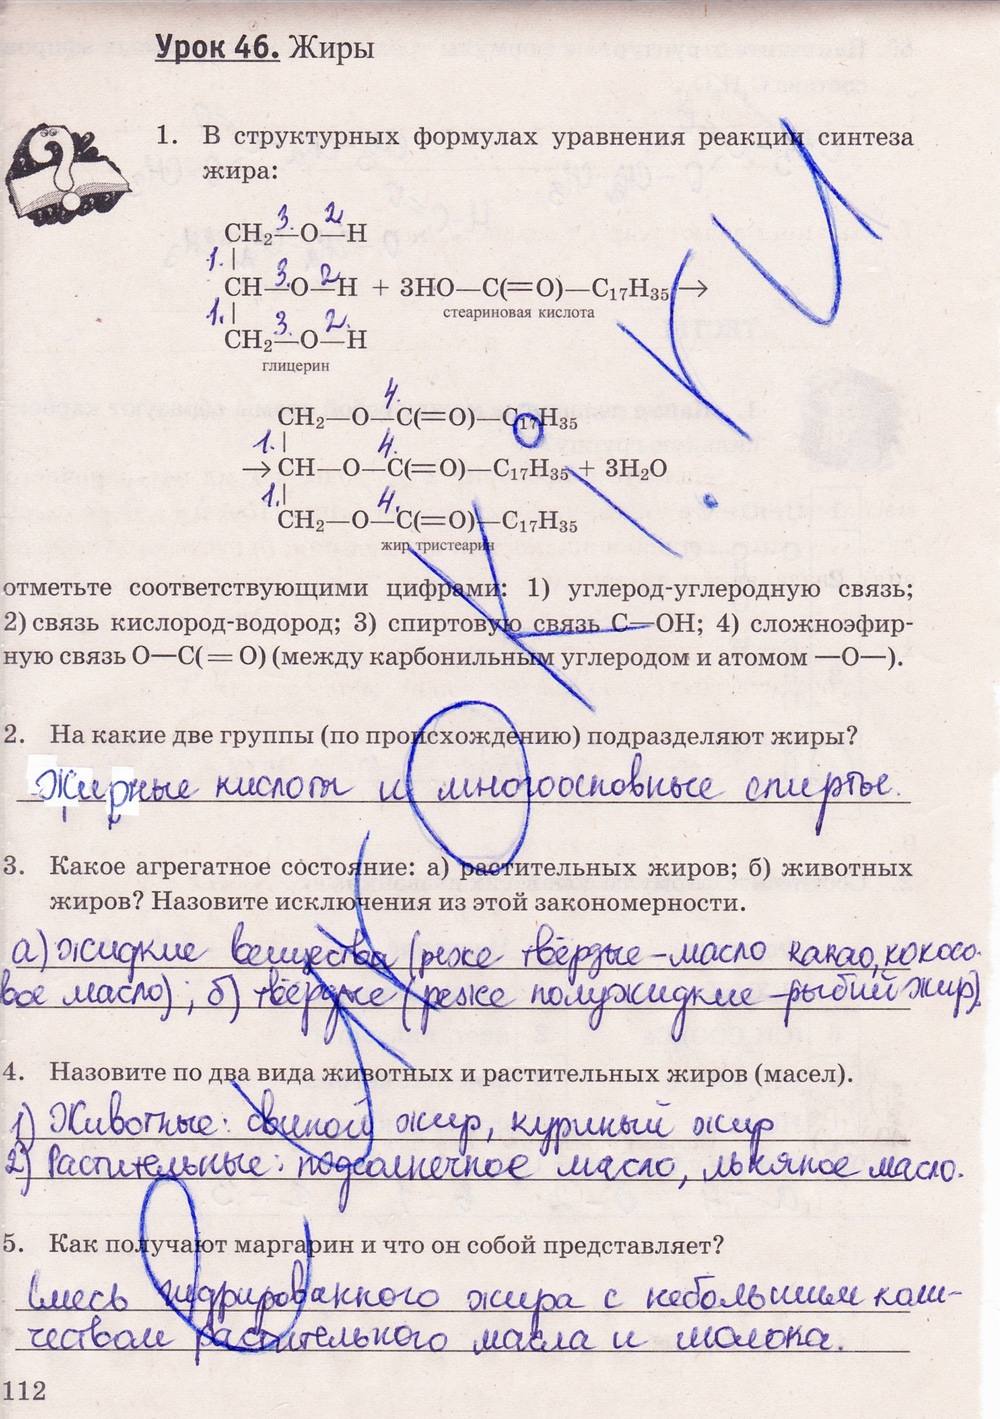 Урок 46. Жиры
1. В структурных формулах уравнения реакции синтеза
жира:
CH₂—O—H
CH—O—H + 3HO—C(=O)—C₁₇H₃₅ →
стеариновая кислота
CH₂—O—H
глицерин
3. 2.
1.
3. 2.
1.
3. 2.
CH₂—O—C(=O)—C₁₇H₃₅
→ CH—O—C(=O)—C₁₇H₃₅ + 3H₂O
CH₂—O—C(=O)—C₁₇H₃₅
жир тристеарин
4.
1. 4.
1. 4.
отметьте соответствующими цифрами: 1) углерод-углеродную связь;
2) связь кислород-водород; 3) спиртовую связь C—OH; 4) сложноэфир-
ную связь O—C(=O) (между карбонильным углеродом и атомом —O—).
2. На какие две группы (по происхождению) подразделяют жиры?
Жирные кислоты и многоосновные спирты.
3. Какое агрегатное состояние: а) растительных жиров; б) животных
жиров? Назовите исключения из этой закономерности.
а) жидкие вещества (реже твёрдые – масло какао, кокосо-
вое масло); б) твёрдые (реже полужидкие – рыбий жир).
4. Назовите по два вида животных и растительных жиров (масел).
1) Животные: свиной жир, куриный жир
2) Растительные: подсолнечное масло, льняное масло.
5. Как получают маргарин и что он собой представляет?
Смесь гидрированного жира с небольшим коли-
чеством растительного масла и молока.
112